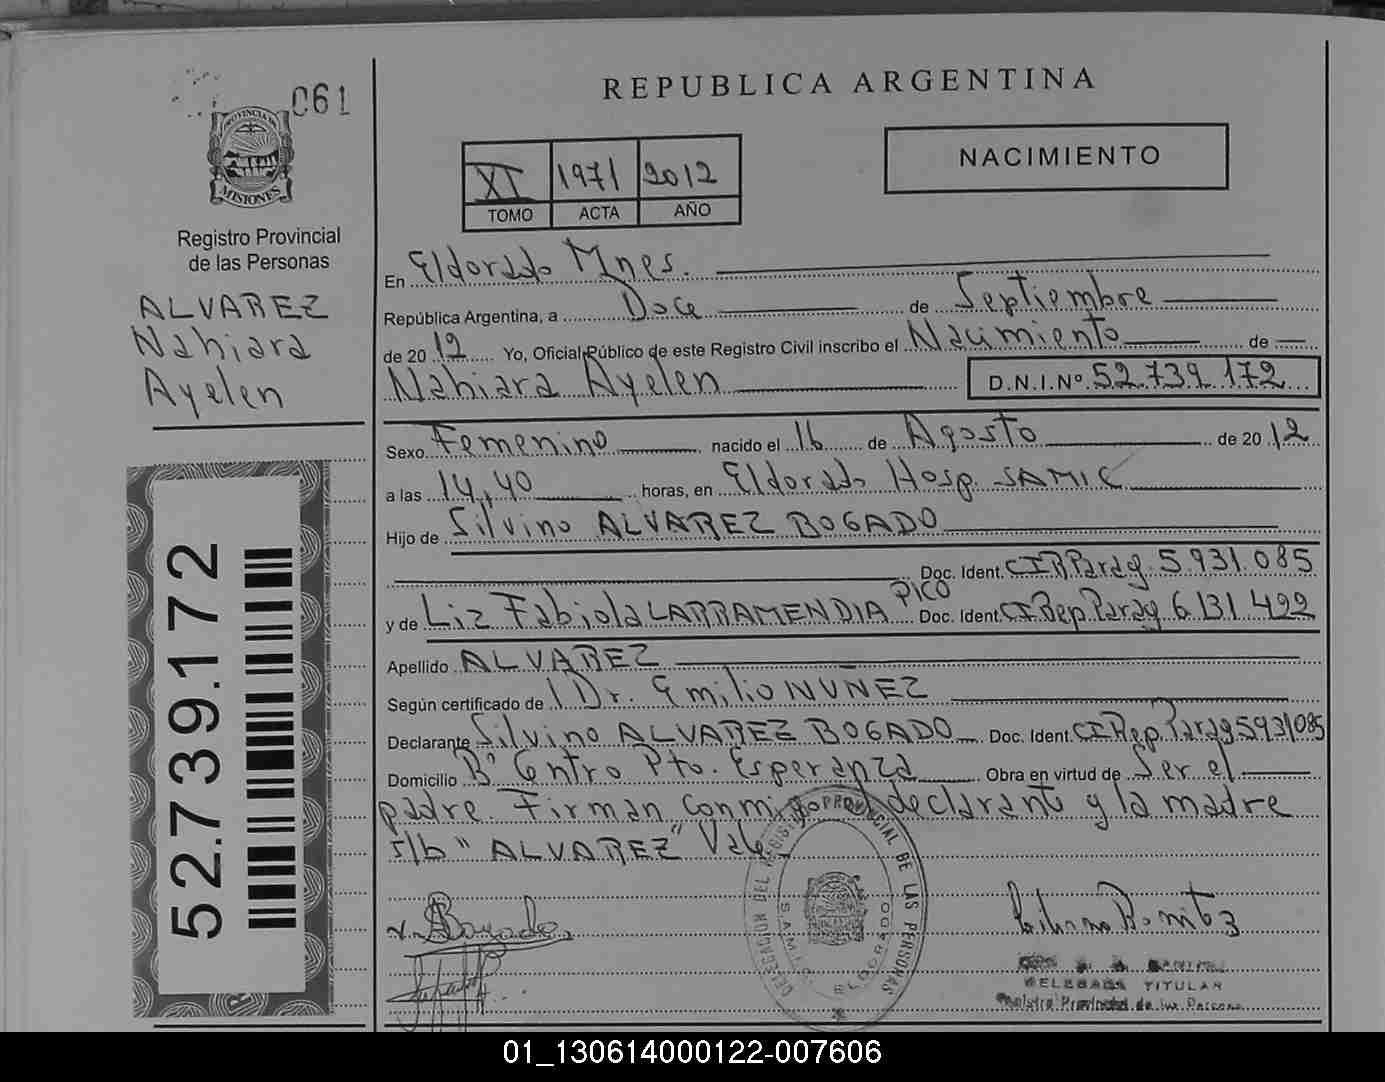 061
PROVINCIA DE
MISIONES
Registro Provincial
de las Personas
ALVAREZ
Nahiara
Ayelen
52.739.172
REPUBLICA ARGENTINA
XI 1971 2012
TOMO ACTA AÑO
NACIMIENTO
En Eldorado Mnes.
República Argentina, a Doce de Septiembre
de 20 12 Yo, Oficial Público de este Registro Civil inscribo el Nacimiento de
Nahiara Ayelen D.N.I.Nº 52.739.172
Sexo Femenino nacido el 16 de Agosto de 20 12
a las 14,40 horas, en Eldorado Hosp. SAMIC
Hijo de Silvino ALVAREZ BOGADO
Doc. Ident. CIRParag. 5.931.085
y de Liz Fabiola LARRAMENDIA PICO Doc. Ident. CI Rep.Parag 6.131.422
Apellido ALVAREZ
Según certificado de 1 Dr. Emilio NUNEZ
Declarante Silvino ALVAREZ BOGADO Doc. Ident. CI Rep. Parag 5931085
Domicilio Bº Centro Pto. Esperanza Obra en virtud de Ser el
padre Firman conmigo el declarante y la madre
s/b "ALVAREZ" Vale
DELEGACION DEL REGISTRO PROVINCIAL DE LAS PERSONAS
SAMIC ELDORADO
DELEGADA TITULAR
Registro Provincial de las Personas
01_130614000122-007606